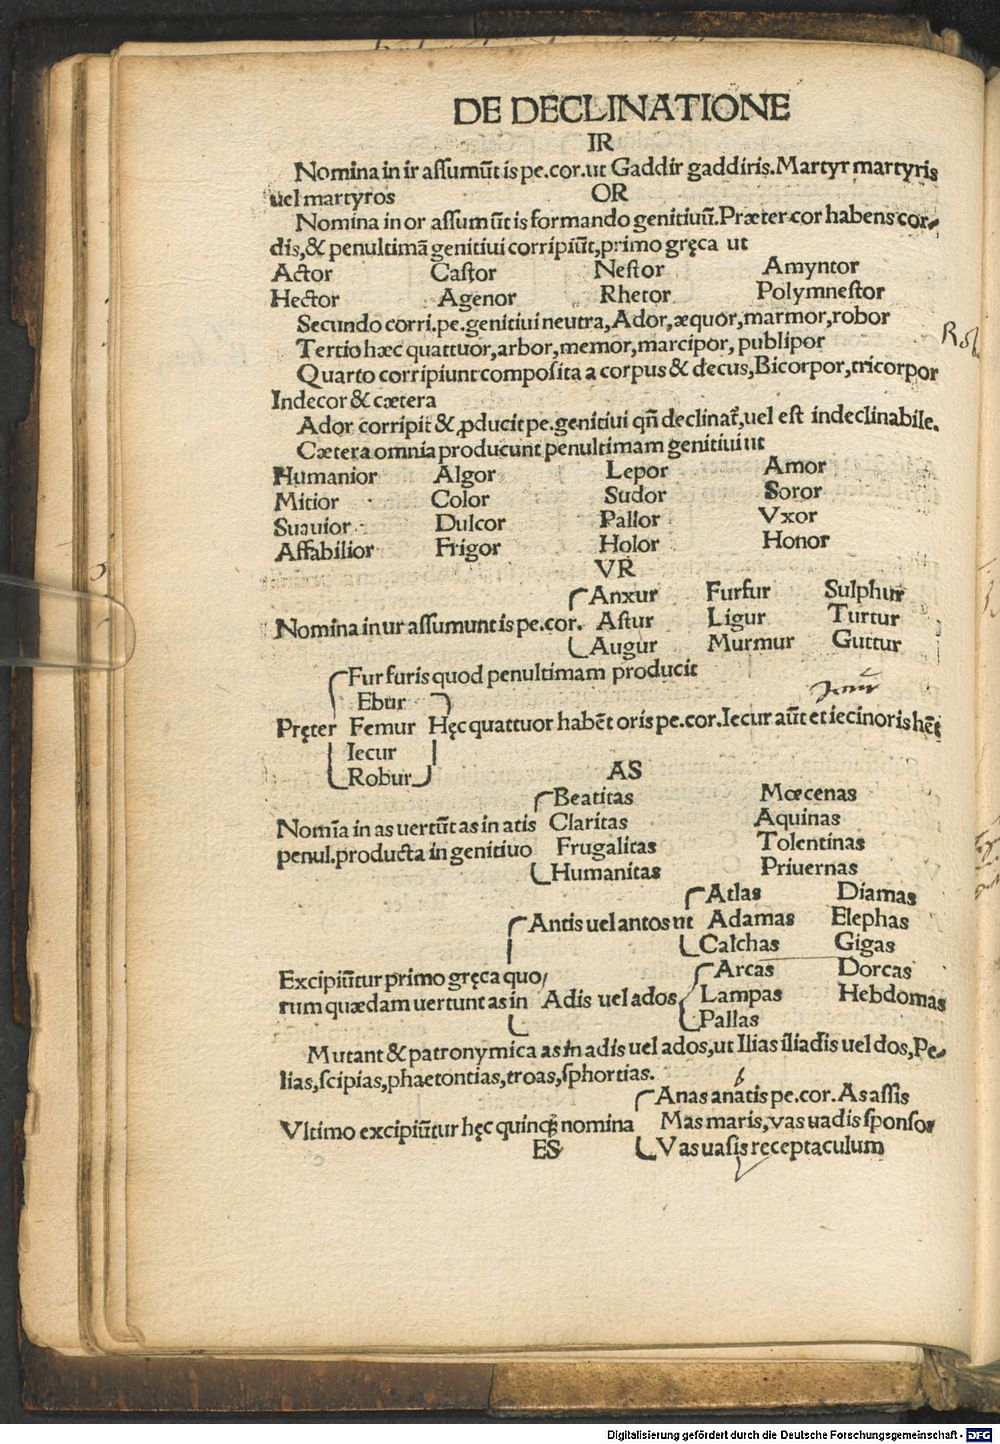 DE DECLINATIONE
IR
Nomina in ir aſſumūt is pe.cor.ut Gaddir gaddiris.Martyr martyris
uel martyros
OR
Nomina in or aſſumūt is formando genitiuū.Præter cor habens cor-
dis,& penultimā genitiui corripiūt,primo gręca ut
Actor Caſtor Neſtor Amyntor
Hector Agenor Rhetor Polymneſtor
Secundo corri.pe.genitiui neutra,Ador,æquor,marmor,robor
Tertio hæc quattuor,arbor,memor,marcipor,publipor
Quarto corripiunt compoſita a corpus & decus,Bicorpor,tricorpor
Indecor & cætera
Ador corripit & ꝓducit pe.genitiui qñ declinat̃,uel eſt indeclinabile.
Cætera omnia producunt penultimam genitiui ut
Humanior Algor Lepor Amor
Mitior Color Sudor Soror
Suauior Dulcor Pallor Vxor
Affabilior Frigor Holor Honor
VR
Anxur Furfur Sulphur
Nomina in ur aſſumunt is pe.cor. Aſtur Ligur Turtur
Augur Murmur Guttur
Fur furis quod penultimam producit
Ebur
Pręter Femur Hęc quattuor habēt oris pe.cor.Iecur aūt et iecinoris hēt
Iecur
Robur
AS
Beatitas Mœcenas
Nomīa in as uertūt as in atis Claritas Aquinas
penul.producta in genitiuo Frugalitas Tolentinas
Humanitas Priuernas
Atlas Diamas
Antis uel antos ut Adamas Elephas
Calchas Gigas
Excipiūtur primo gręca quo/ Arcas Dorcas
rum quædam uertunt as in Adis uel ados Lampas Hebdomas
Pallas
Mutant & patronymica as in adis uel ados,ut Ilias iliadis uel dos,Pe-
lias,ſcipias,phaetontias,troas,ſphortias.
Anas anatis pe.cor. As aſſis
Vltimo excipiūtur hęc quinq; nomina Mas maris,vas uadis ſponſor
Vas uaſis receptaculum
ES
Digitalisierung gefördert durch die Deutsche Forschungsgemeinschaft - DFG